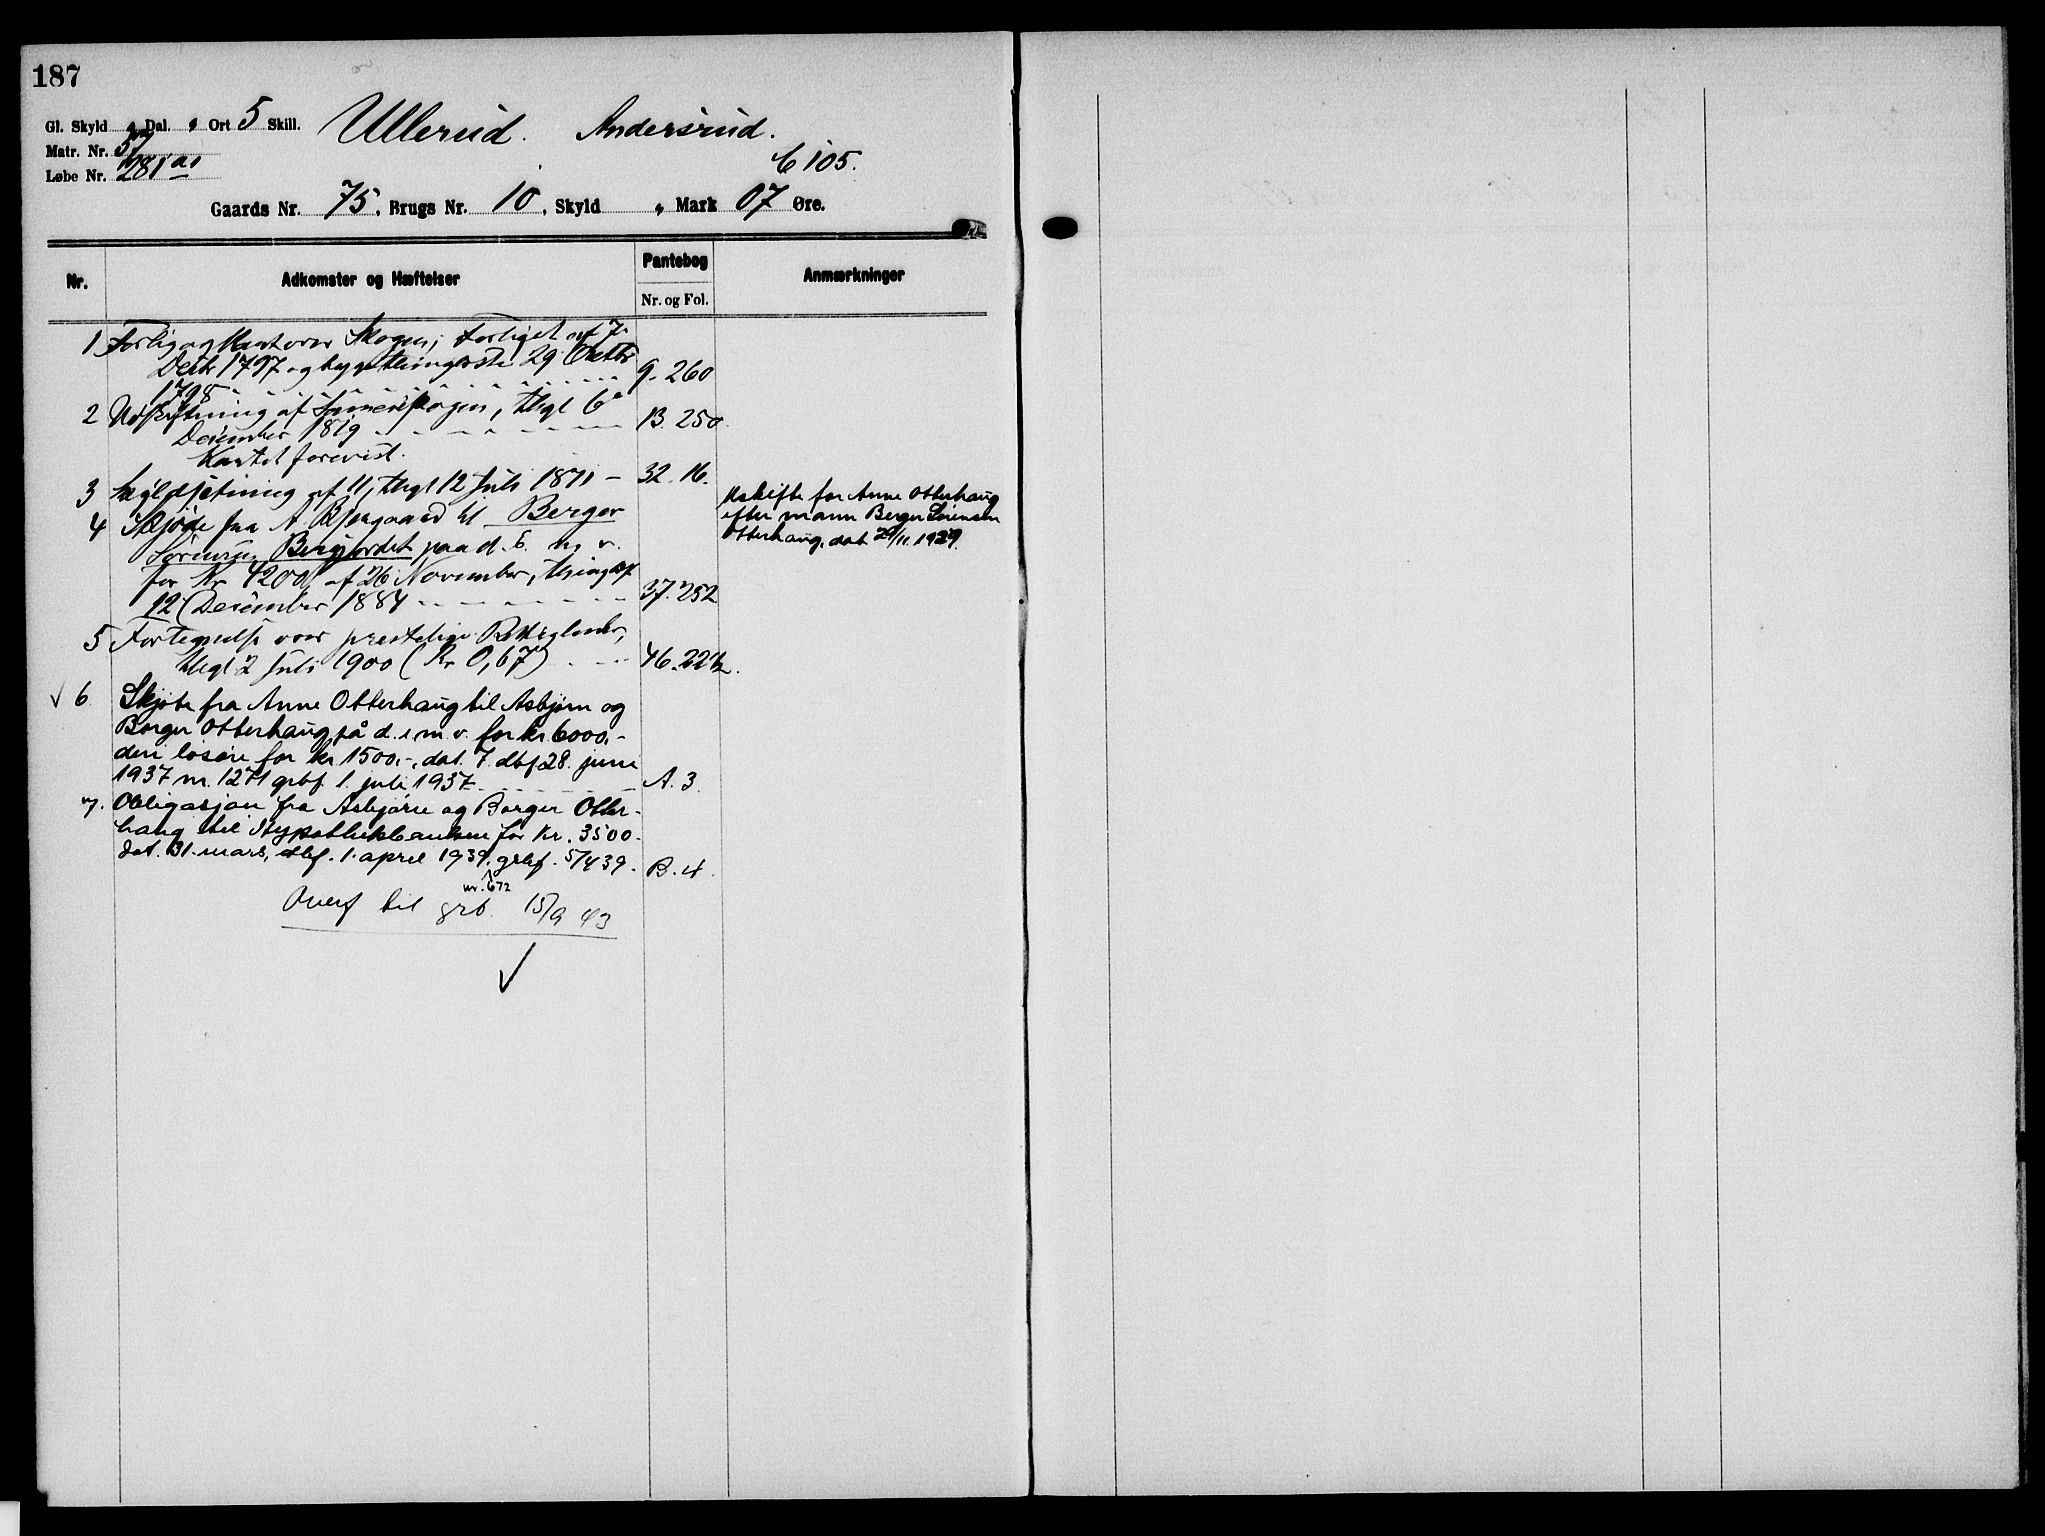 187
Gl. Skyld „ Dal. „ Ort 5 Skill. Ullerud. Andersrud.
Matr. Nr. 57
Løbe Nr. 281 a1 C 105.
Gaards Nr. 75, Brugs Nr. 10, Skyld „ Mark 07 Øre.
Nr. Adkomster og Hæftelser Pantebog Anmærkninger
Nr. og Fol.
1 Forlig og Kart over Skogen; Forliget af 7
Decbr 1797 og 29 Octbr
1798 9. 260
2 Udskiftning af thgl 6
December 1819 13. 250
Kartet forevist.
3 Skyldsetning af 11, thgl 12 Juli 1871 32. 16.
4 Skjøde fra A. Bjergaard til Berger
Sørensen Bergjordet paa d. E. m. v.
for Kr 4200, af 26 November, thingl
12 December 1884 37. 252
5 Fortegnelse over prestelige
thgl 2 Juli 1900 (Kr 0,67) 46. 227½.
√ 6 Skjøte fra Anne Otterhaug til Asbjørn og
Borger Otterhaug på d. e. m. v. for kr. 6000,-
deri løsøre for kr 1500.-, dat. 7. dbf 28. juni
1937 nr. 1271 grbf. 1. juli 1937 A. 3.
7. Obligasjon fra Asbjørn og Borger Otter-
haug til Hypothekbanken for kr. 3500.-
dat. 31. mars, dbf. 1. april 1939, grbf. 5/4 39. B. 4.
nr. 672
Overf til grb. 15/9 43
√
Uskifte for Anne Otterhaug
efter mann Berger Sørensen
Otterhaug, dat 29/11. 1929.